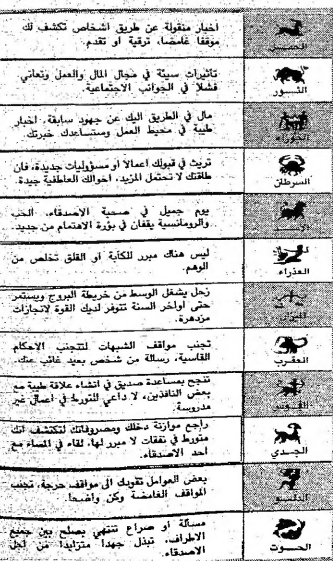 اخبار منقولة عن طريق اشخاص تكشف لك
موقفا غامضا، ترقية او تقدم.
الحمل
تاثيرات سيئة في مجال المال والعمل وتعاني
فشلا في الجوانب الاجتماعية.
الثور
مال في الطريق اليك عن جهود سابقة، اخبار
طيبة في محيط العمل وستساعدك خبرتك.
الجوزاء
تريث في قبولك اعمالا او مسؤوليات جديدة، فان
طاقتك لا تحتمل المزيد، احوالك العاطفية جيدة.
السرطان
يوم جميل في صحبة الاصدقاء، الحب
والرومانسية يقفان في بؤرة الاهتمام من جديد.
الاسد
ليس هناك مبرر للكآبة أو القلق تخلص من
الوهم.
العذراء
زحل يشغل الوسط من خريطة البروج ويستمر
حتى أواخر السنة تتوفر لديك القوة لانجازات
مزدهرة.
الميزان
تجنب مواقف الشبهات لتتجنب الاحكام
القاسية، رسالة من شخص بعيد غائب عنك.
العقرب
تنجح بمساعدة صديق في انشاء علاقة طيبة مع
بعض النافذين، لا داعي للتورط في اعمال غير
مدروسة.
القوس
راجع موازنة دخلك ومصروفاتك لتكتشف انك
متورط في نفقات لا مبرر لها، لقاء في المساء مع
احد الاصدقاء.
الجدي
بعض العوامل تقودك الى مواقف حرجة، تجنب
المواقف الغامضة وكن واضحا.
الدلو
مسألة أو صراع تنتهي بصلح بين جميع
الاطراف، تبذل جهدا متزايدا من اجل
الاصدقاء.
الحوت